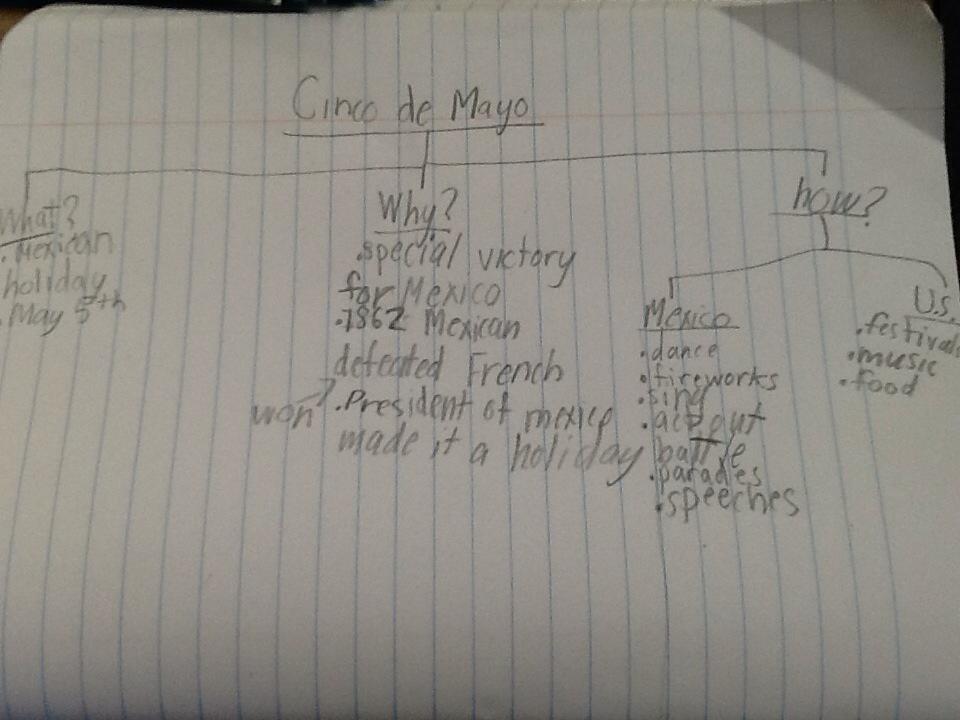 Cinco de Mayo
What?
. Mexican
holiday
. May 5th
Why?
.special victory
for Mexico
.1862 Mexican
defeated French
won
.President of mexico
made it a holiday
how?
Mexico
.dance
.fireworks
.sing
.act out
battle
.parades
.speeches
U.S.
.festivals
.music
.food